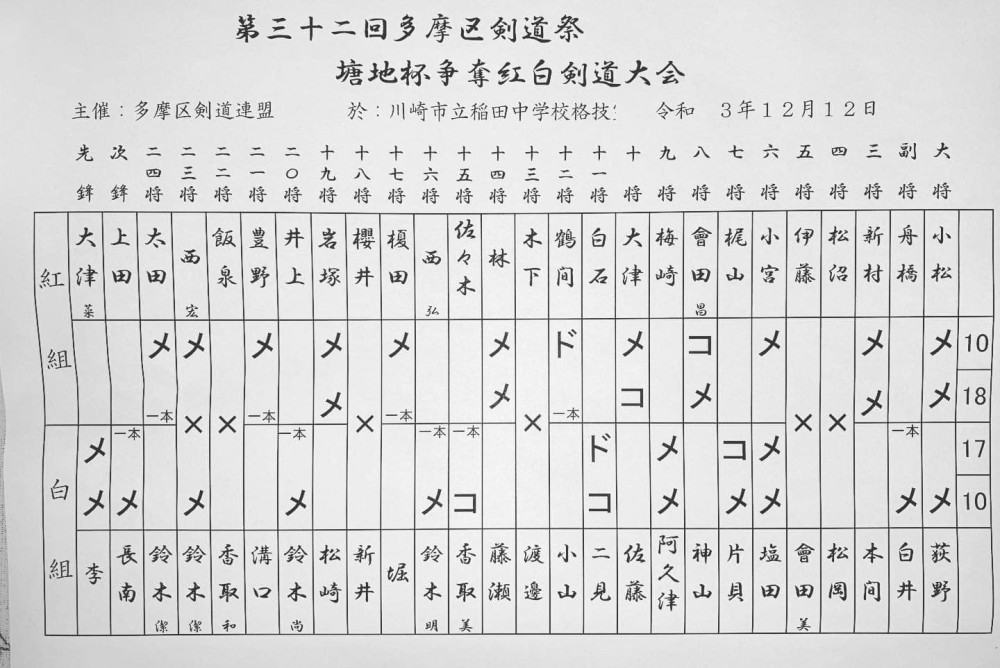 第三十二回多摩区剣道祭
塘地杯争奪紅白剣道大会
主催：多摩区剣道連盟 於：川崎市立稲田中学校格技 令和 3年12月12日
先鋒 次鋒 二四将 二三将 二二将 二一将 二〇将 十九将 十八将 十七将 十六将 十五将 十四将 十三将 十二将 十一将 十将 九将 八将 七将 六将 五将 四将 三将 副将 大将
紅組 大津菜 上田 太田 西宏 飯泉 豊野 井上 岩塚 櫻井 榎田 西弘 佐々木 林 木下 鶴间 白石 大津 梅崎 會田昌 梶山 小宮 伊藤 松沼 新村 舟橋 小松
メ メ メ メ メ ド メ コ メ メ メ 10
メ メ コ メ メ メ 18
一本 一本 一本 一本
× × × × × ×
一本 一本 一本 一本 一本
メ ド メ コ メ 17
メ メ メ メ メ コ コ メ メ メ メ メ 10
白組 李 長南 鈴木潔 鈴木潔 香取和 溝口 鈴木尚 松崎 新井 堀 鈴木明 香取美 藤瀬 渡邊 小山 二見 佐藤 阿久津 神山 片貝 塩田 會田美 松岡 本間 白井 荻野